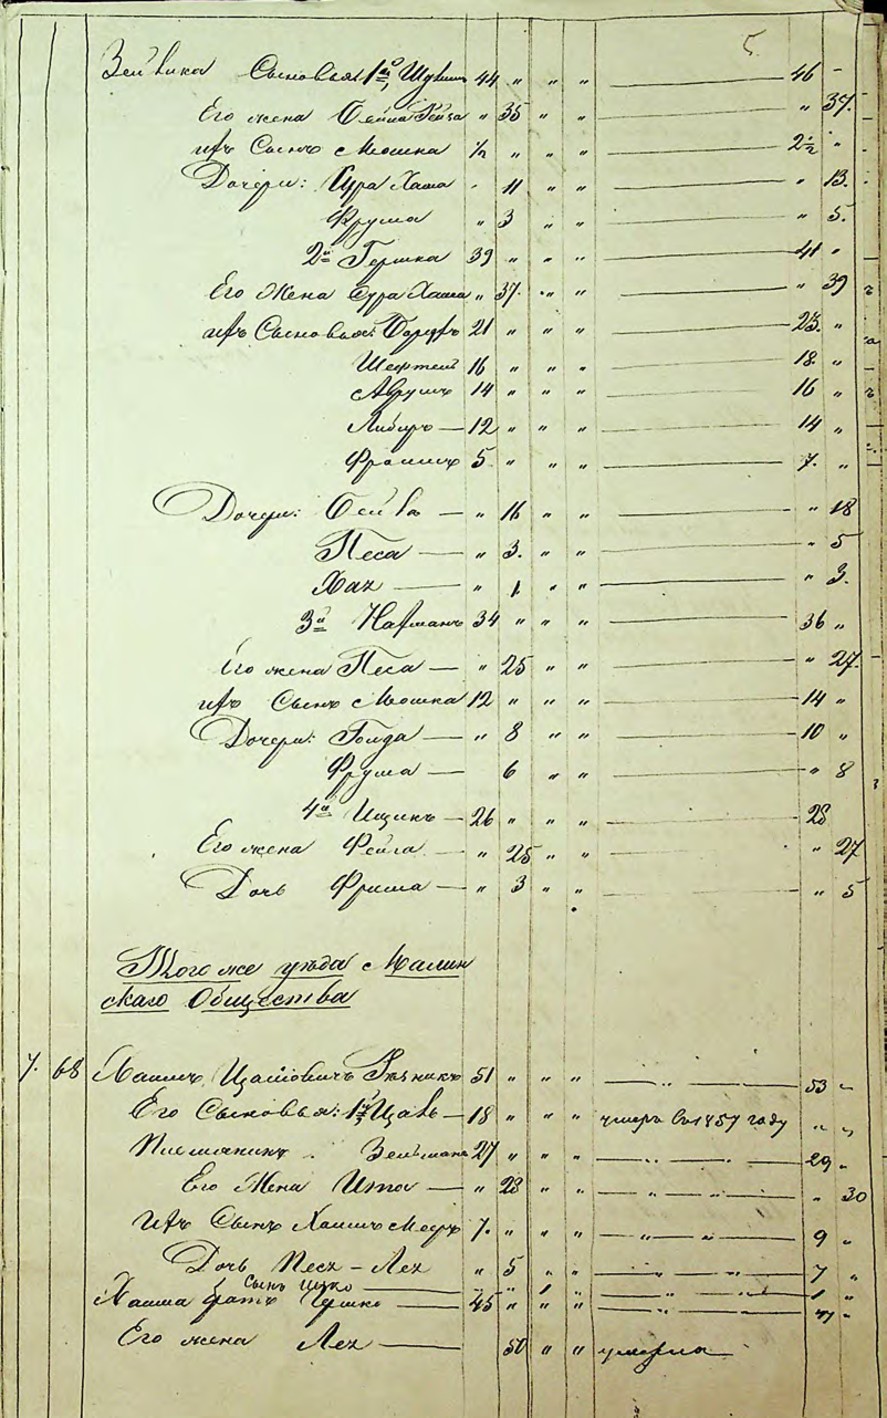 5.
Зейвика Сыновья 1й, 44 " " " 46 -
Его жена Бейла Рейза " 35 " " " 37.
ихъ Сынъ Мошка 1/2 " " " 2 1/2 "
Дочери: Сура Хаша - 11 " " " 13.
Фрума " 3 " " " 5.
2й Гершка 39 " " " 41 "
Его Жена Сура Хаша " 37. " " " 39
ихъ Сыновья: 21 " " " 23. "
Шефтель 16 " " " 18. "
Аврумъ 14 " " " 16 "
Либеръ 12 " " " 14 "
Фроимъ 5 " " " 7. "
Дочери: Бейла " 16 " " " 18
Песа " 3. " " " 5
Хая " 1 " " " 3.
3й Нахманъ 34 " " " 36 "
Его жена Песа " 25 " " " 27.
ихъ Сынъ Мошка 12 " " " 14 "
Дочери: Голда " 8 " " 10 "
Фрума 6 " " " 8
4й Ицикъ 26 " " " 28
Его жена Фейга " 25 " " " 27
Дочь Фрима " 3 " " " 5
Того же уѣзда Малин
скаго Общества
7. 68 Хаимъ Резникъ 51 " " " 53 "
Его Сыновья: 1й 18 " " " умеръ въ 1857 году " "
Племянникъ Зельманъ 27 " " " 29 "
Его Жена Ита " 28 " " " 30
Ихъ Сынъ Хаимъ 7. " " " 9 "
Дочь Песя - Лея " 5 " " 7 "
Сынъ Ицко " " 1 " 1 "
Хаима братъ Гершко 45 " " " 47 "
Его жена Лея 50 " " умерла